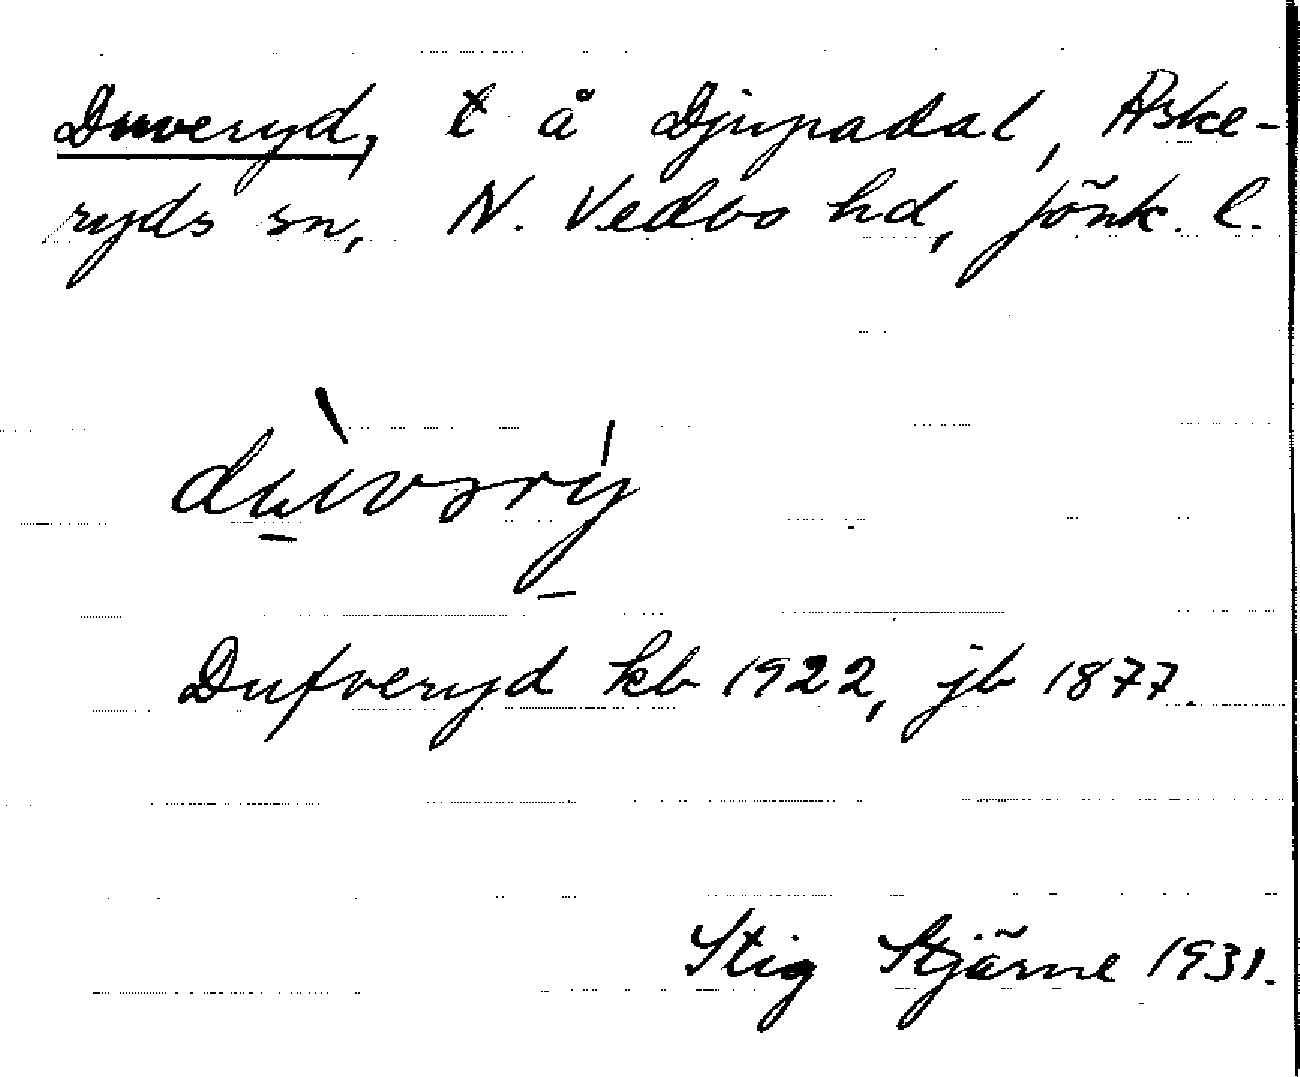 Duveryd, t å Djupadal, Aske-
ryds sn, N. Vedbo hd, Jönk. l.
dùvərý
Dufveryd kb 1922, jb 1877.
Stig Stjärne 1931.